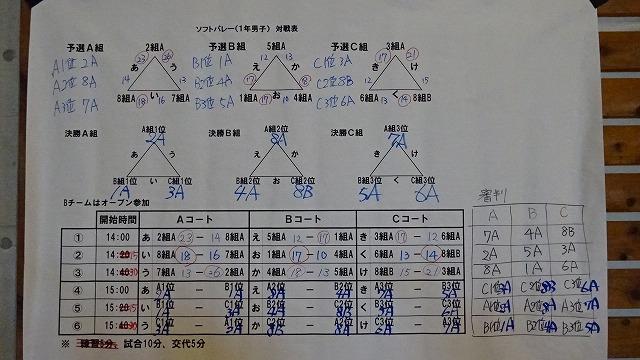 ソフトバレー(1年男子) 対戦表
予選A組 2組A 予選B組 5組A 予選C組 3組A
A1位 2A あ 23 26 う B1位 1A え 12 13 か C1位 3A き 17 21 け
A2位 8A 14 13 B2位 4A 17 18 C2位 8B 12 15
A3位 7A 8組A 18 い 16 7組A B3位 5A 1組A 17 お 10 4組A C3位 6A 6組A 13 く 14 8組B
決勝A組 A組1位 2A 決勝B組 A組2位 8A 決勝C組 A組3位 7A
あ う え か き け
B組1位 い C組1位 B組2位 お C組2位 B組3位 く C組3位
1A 3A 4A 8B 5A 6A
Bチームはオープン参加
開始時間 Aコート Bコート Cコート
① 14:00 あ 2組A 23 - 14 8組A え 5組A 12 - 17 1組A き 3組A 17 - 12 6組A
② 14:2015 い 8組A 18 - 16 7組A お 1組A 17 - 10 4組A く 6組A 13 - 14 8組B
③ 14:4030 う 7組A 13 - 26 2組A か 4組A 18 - 13 5組A け 8組B 15 - 21 3組A
④ 15:00 あ A1位 2A - B1位 1A え A2位 8A - B2位 4A き A3位 7A - B3位 5A
⑤ 15:2015 い B1位 1A - C1位 3A お B2位 4A - C2位 8B く B3位 5A - C3位 6A
⑥ 15:4030 う C1位 3A - A1位 2A か C2位 8B - A2位 8A け C3位 6A - A3位 7A
※ 練習5分、試合10分、交代5分
審判
A B C
7A 4A 8B
2A 5A 3A
8A 1A 6A
C1位3A C2位8B C3位6A
A1位2A A2位8A A3位7A
B1位1A B2位4A B3位5A